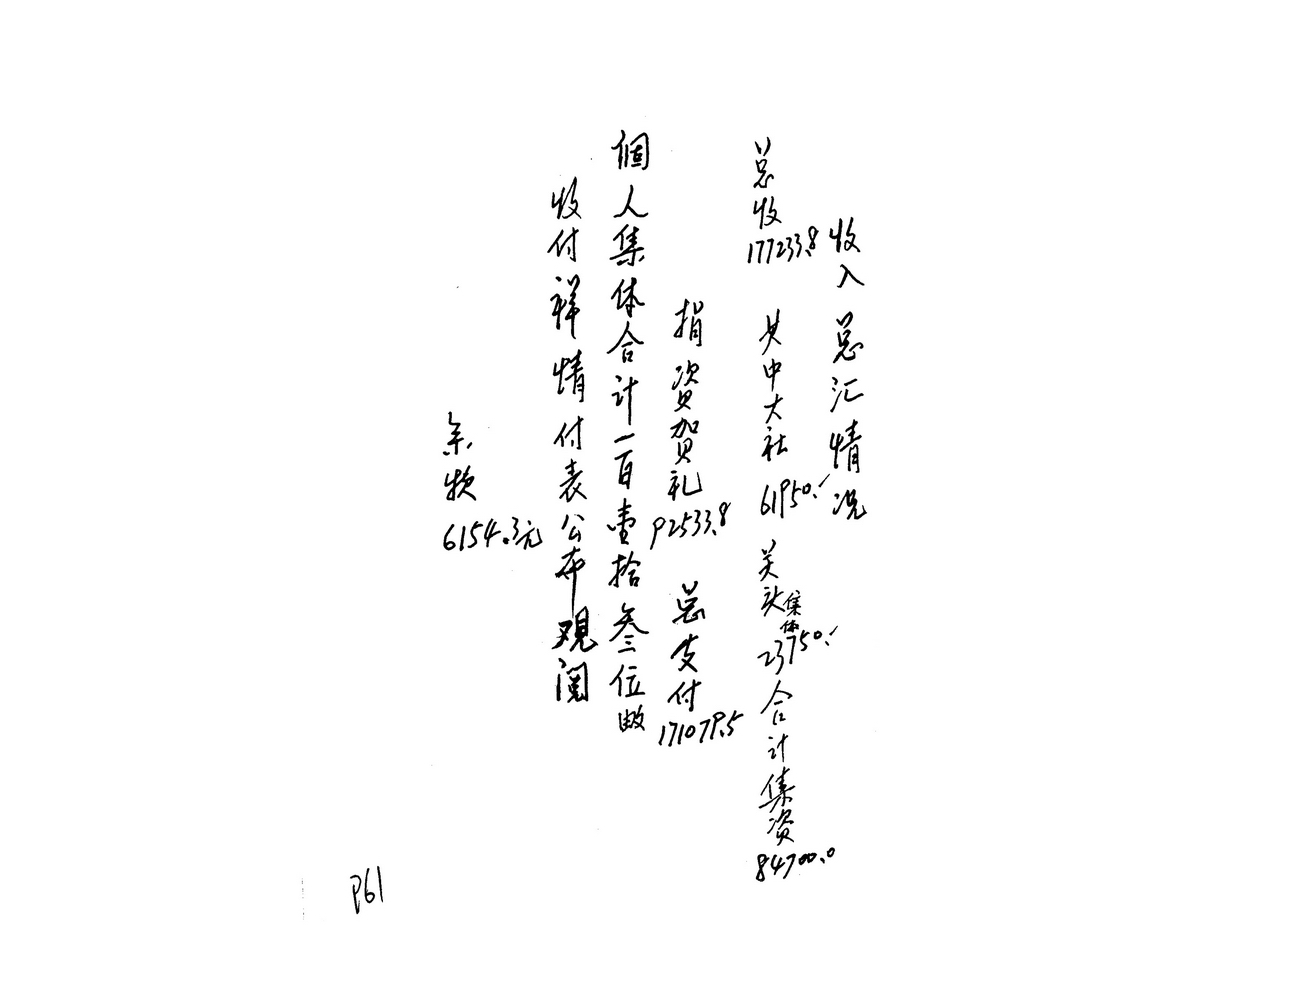 收入总汇情况
总收177233.8 其中大社61950.- 关头集体23750.- 合计集资84700.0
捐资贺礼92533.8 总支付171079.5
個人集体合计一百壹拾叁位
收付祥情付表公布观阅
余额6154.3元
P61